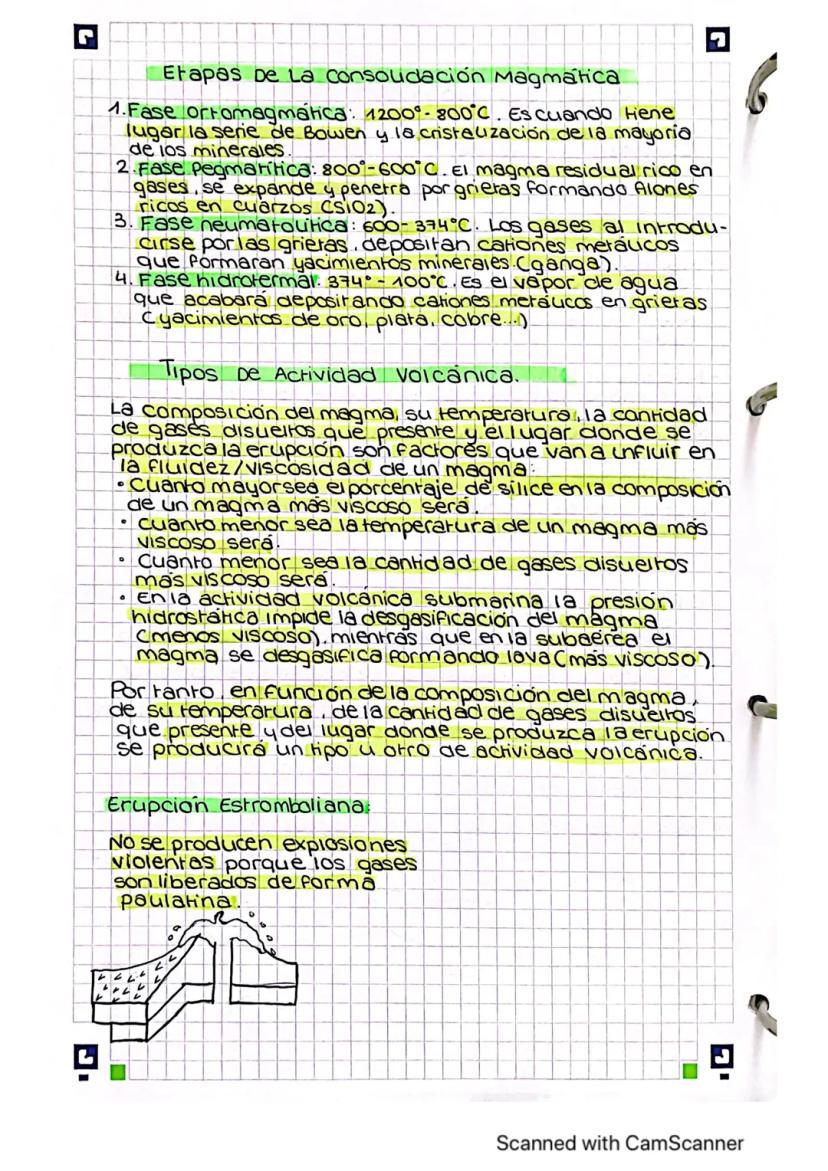 Etapas De La Consolidación Magmática
1. Fase Ortomagmática: 1200º-800°C. Es cuando tiene
lugar la serie de Bowen y la cristalización de la mayoría
de los minerales.
2. Fase Pegmatítica: 800º-600°C. El magma residual rico en
gases, se expande y penetra por grietas formando filones
ricos en cuarzos (SiO2).
3. Fase neumatolítica: 600-374°C. Los gases al introdu-
cirse por las grietas, depositan cationes metálicos
que formaran yacimientos minerales (ganga).
4. Fase hidrotermal: 374º-100°C. Es el vapor de agua
que acabará depositando cationes metálicos en grietas
(yacimientos de oro, plata, cobre...)
Tipos De Actividad Volcánica.
La composición del magma, su temperatura, la cantidad
de gases disueltos que presente y el lugar donde se
produzca la erupción son factores que van a influir en
la fluidez/viscosidad de un magma:
• Cuánto mayor sea el porcentaje de sílice en la composición
de un magma más viscoso será.
• Cuánto menor sea la temperatura de un magma más
viscoso será.
• Cuánto menor sea la cantidad de gases disueltos
más viscoso será.
• En la actividad volcánica submarina la presión
hidrostática impide la desgasificación del magma
(menos viscoso), mientras que en la subaérea el
magma se desgasifica formando lava (más viscoso).
Por tanto, en función de la composición del magma,
de su temperatura, de la cantidad de gases disueltos
que presente y del lugar donde se produzca la erupción
se producirá un tipo u otro de actividad volcánica.
Erupción Estromboliana:
No se producen explosiones
violentas porque los gases
son liberados de forma
paulatina.
Scanned with CamScanner